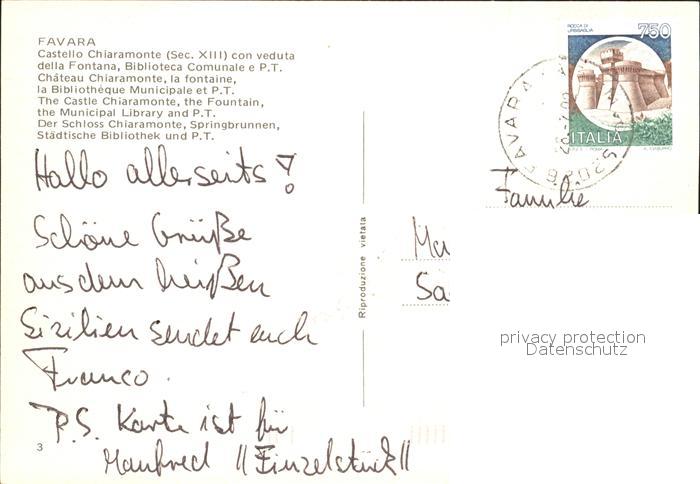 FAVARA
Castello Chiaramonte (Sec. XIII) con veduta
della Fontana, Biblioteca Comunale e P.T.
Château Chiaramonte, la fontaine,
la Bibliothéque Municipale et P.T.
The Castle Chiaramonte, the Fountain,
the Municipal Library and P.T.
Der Schloss Chiaramonte, Springbrunnen,
Städtische Bibliothek und P.T.
Hallo allerseits!
Schöne Grüße
aus dem heißen
Sizilien sendet euch
Franco.
P.S. Karte ist für
Manfred "Einzelstück"
3
Riproduzione vietata
ROCCA DI
URBISAGLIA
750
ITALIA
FAVARA
Familie
Ma
Sa
privacy protection
Datenschutz